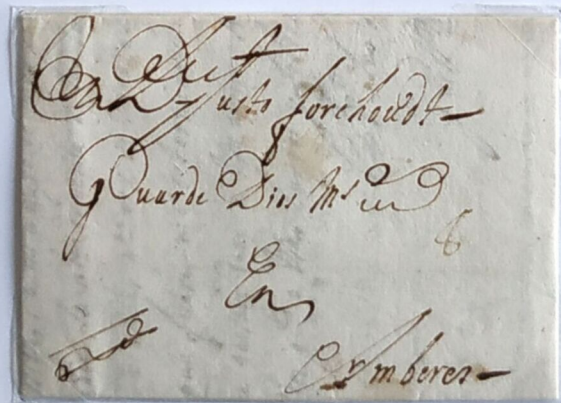 A D Justo forchoudt
Guarde Dios Ms as
En
Amberes